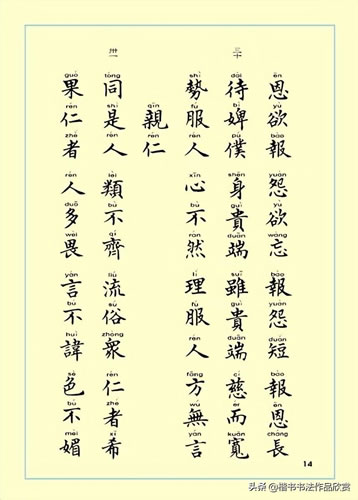 ēn yù bào yuàn yù wàng bào yuàn duǎn bào ēn cháng
恩欲報 怨欲忘 報怨短 報恩長
三十
dài bì pú shēn guì duān suī guì duān cí ér kuān
待婢僕 身貴端 雖貴端 慈而寬
shì fú rén xīn bù rán lǐ fú rén fāng wú yán
勢服人 心不然 理服人 方無言
qīn rén
親仁
卅一
tóng shì rén lèi bù qí liú sú zhòng rén zhě xī
同是人 類不齊 流俗眾 仁者希
guǒ rén zhě rén duō wèi yán bù huì sè bù mèi
果仁者 人多畏 言不諱 色不媚
14
头条 @楷书书法作品欣赏